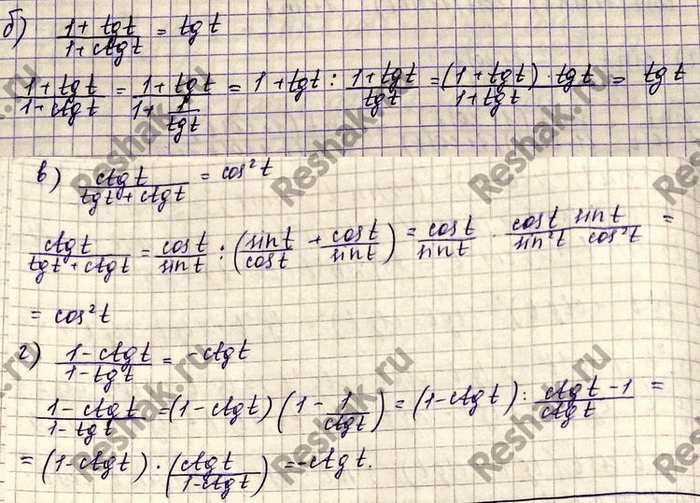 б) (1 + tgt)/(1 + ctgt) = tgt
(1 + tgt)/(1 + ctgt) = (1 + tgt)/(1 + 1/tgt) = 1 + tgt : (1 + tgt)/tgt = ((1 + tgt) · tgt)/(1 + tgt) = tgt
в) ctgt/(tgt + ctgt) = cos²t
ctgt/(tgt + ctgt) = cost/sint : (sint/cost + cost/sint) = cost/sint · (cost sint)/(sin²t cos²t) =
= cos²t
г) (1 - ctgt)/(1 - tgt) = -ctgt
(1 - ctgt)/(1 - tgt) = (1 - ctgt) (1 - 1/ctgt) = (1 - ctgt) : (ctgt - 1)/ctgt =
= (1 - ctgt) · (ctgt/(1 - ctgt)) = -ctgt.
Reshak.ru